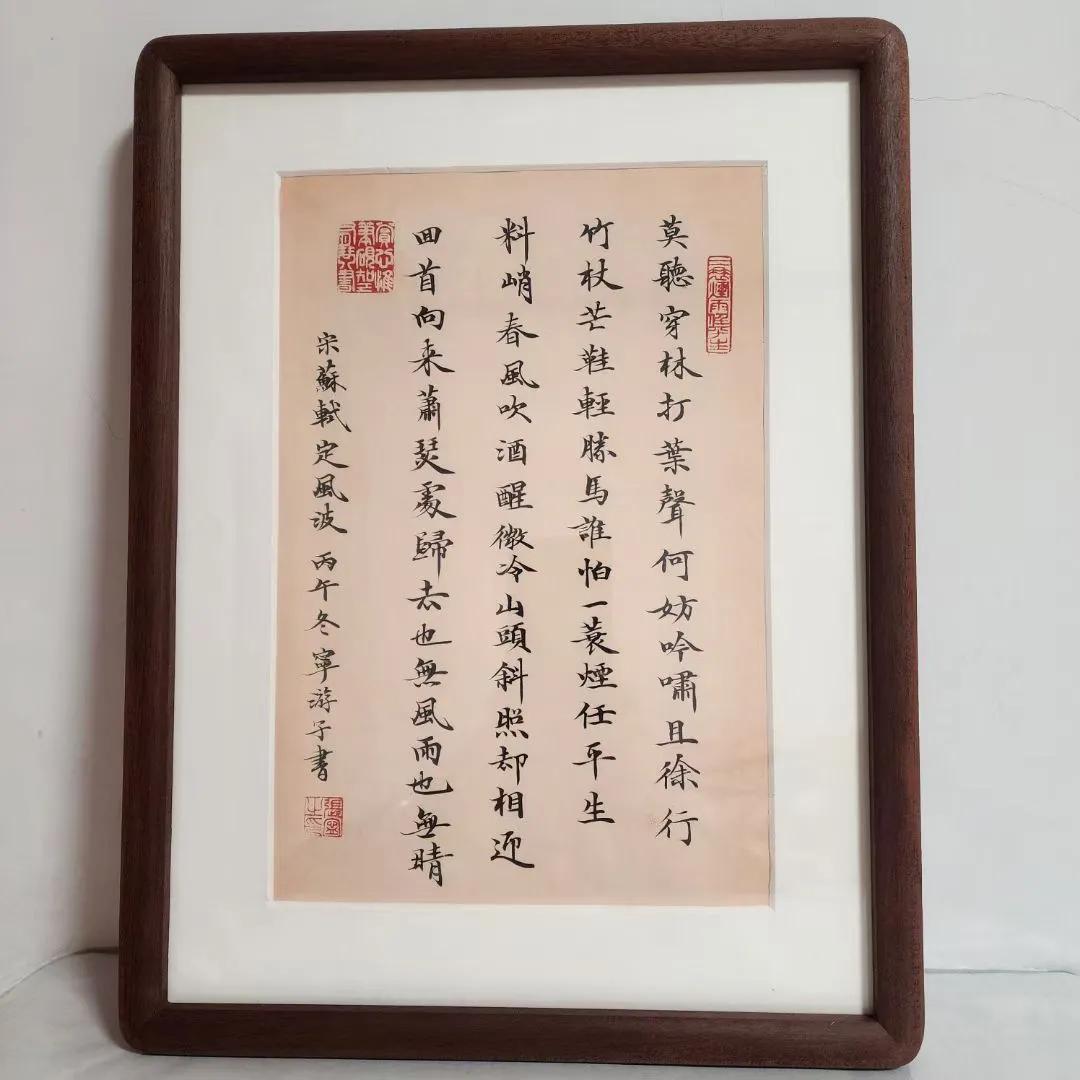 莫聽穿林打葉聲何妨吟嘯且徐行
竹杖芒鞋輕勝馬誰怕一蓑煙任平生
料峭春風吹酒醒微冷山頭斜照却相迎
回首向来蕭瑟處歸去也無風雨也無晴
宋蘇軾定風波 丙午冬寧游子書